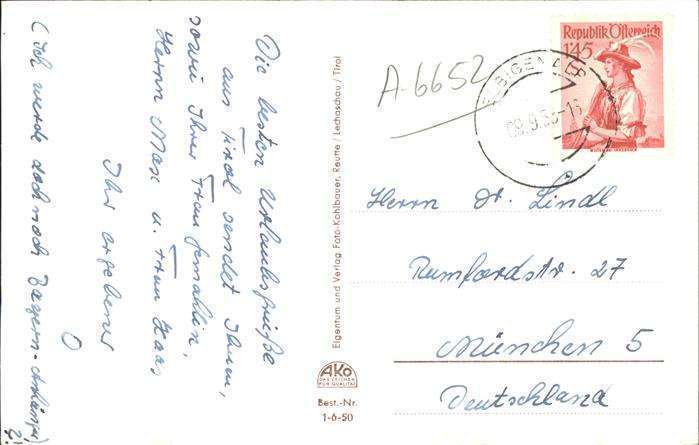 Die besten Urlaubsgrüße
aus Tirol sendet Ihnen,
sowie Ihrer Frau Gemahlin,
Herrn Max u. Frau Haas
Ihr ergebener
(Ich werde doch noch Bayern-Anhänger)
Eigentum und Verlag Foto-Kohlbauer, Reutte / Lechaschau / Tirol
AKO
DAS ZEICHEN
FÜR QUALITÄT
Best.-Nr.
1-6-50
A-6652
Republik Österreich
1'45
09.9.53
Herrn Dr. Lindl
Rumfordstr. 27
München 5
Deutschland